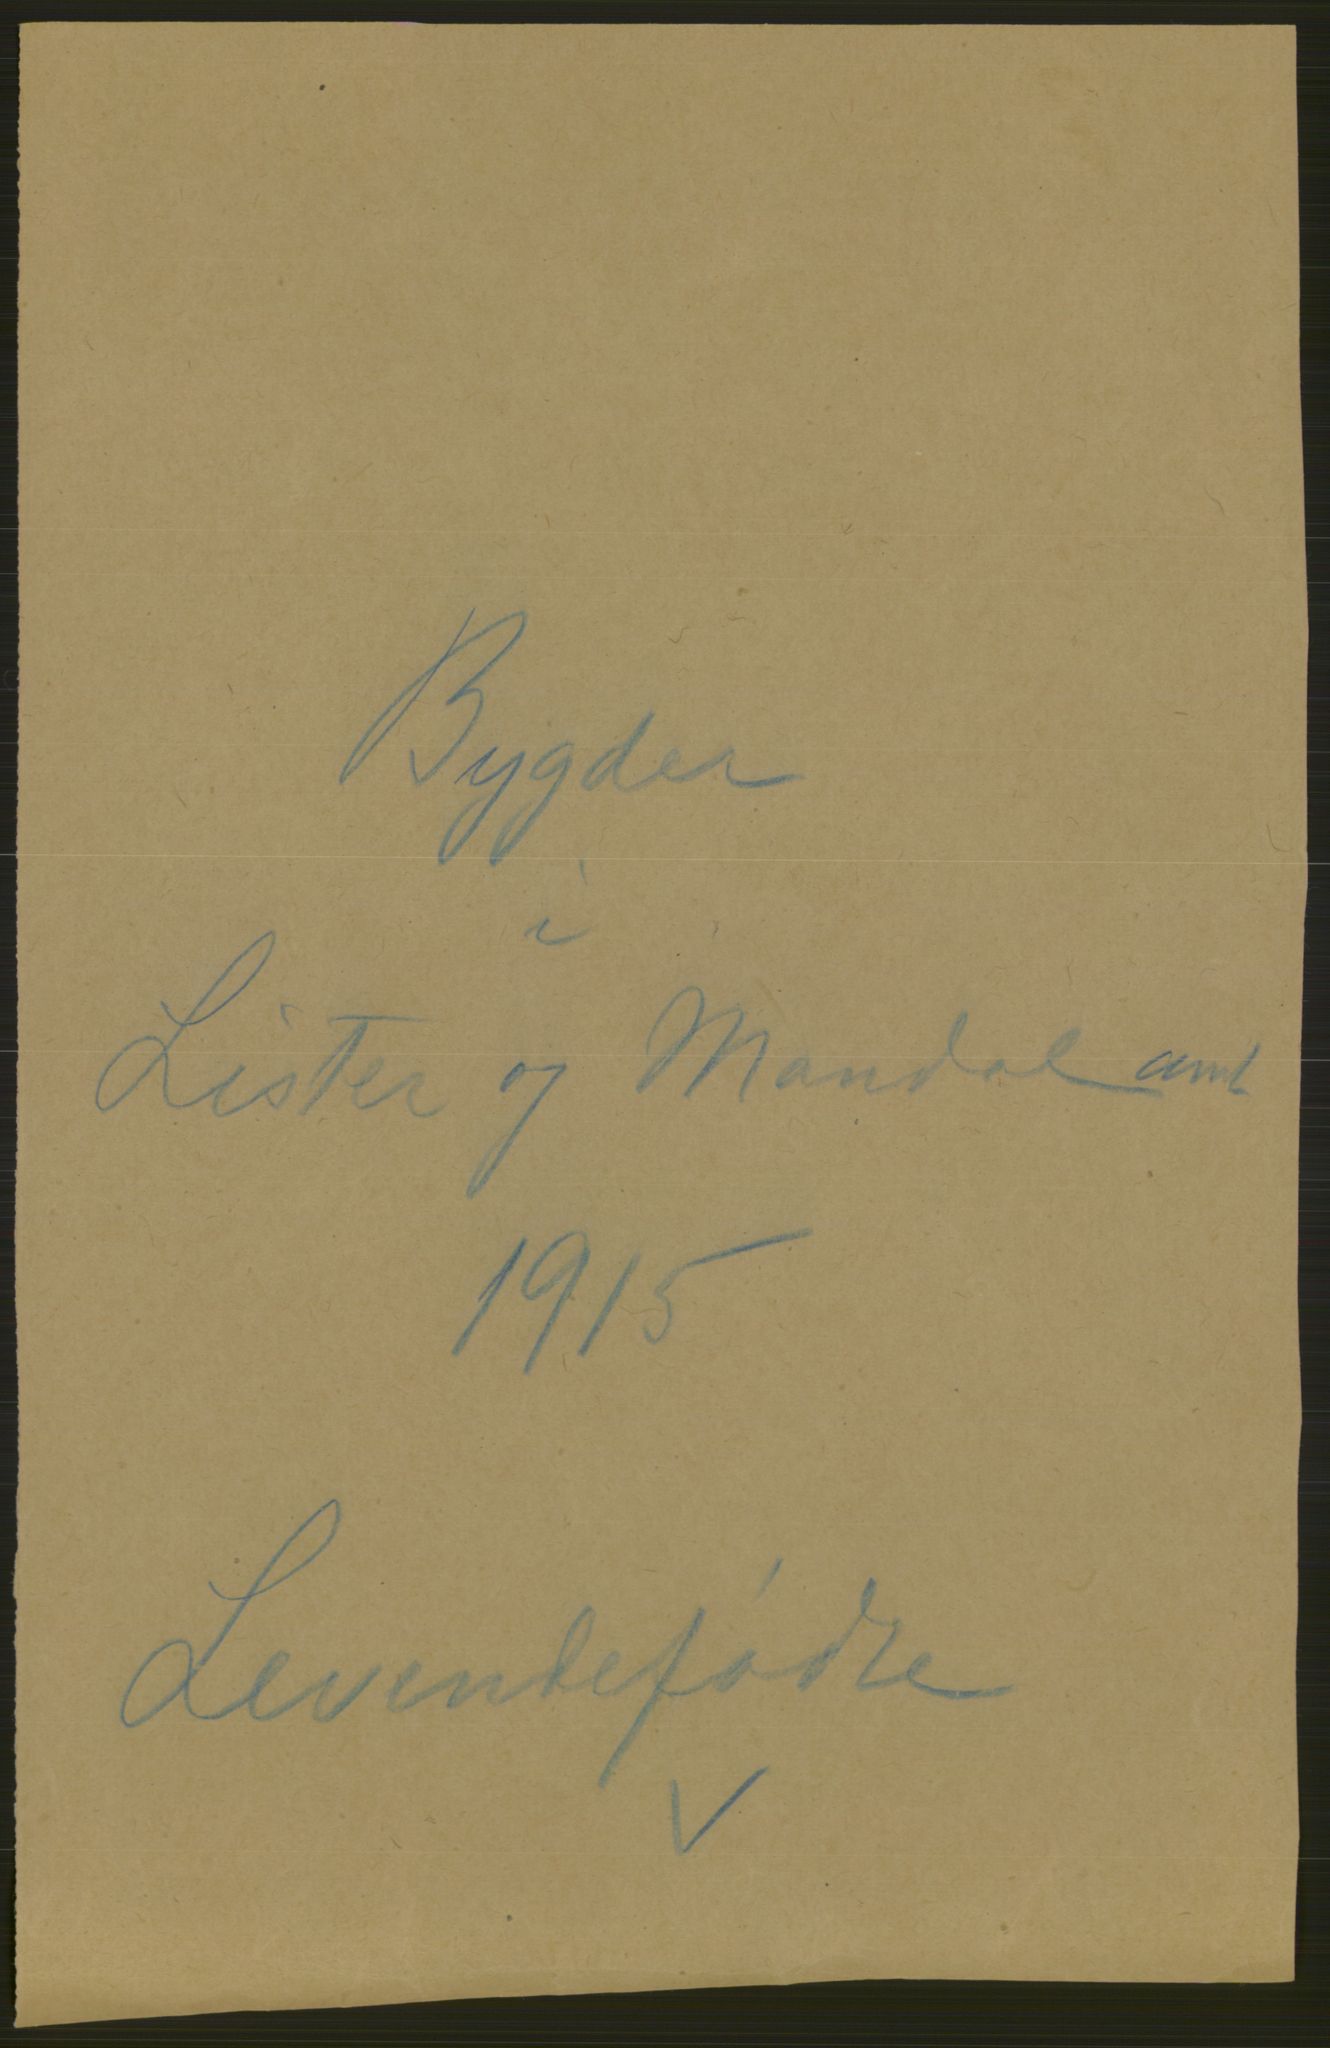 Bygder
i
Lister og Mandal amt
1915
Levendefódte
V